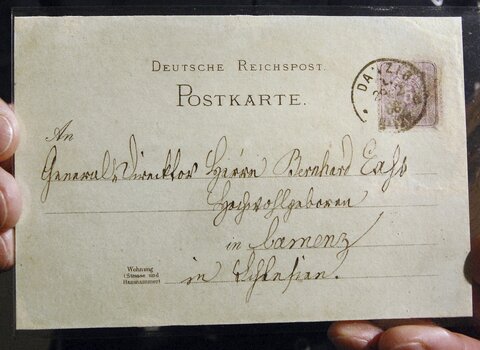 DEUTSCHE REICHSPOST.
POSTKARTE.
DANZIG
An
General Direcktor Herrn Bernhard
Hochwohlgeboren
in Camenz
in Schlesien.
Wohnung
(Strasse und
Hausnummer)